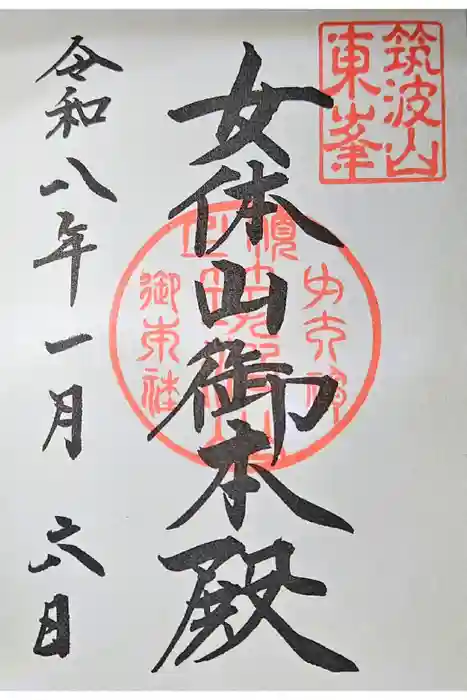 筑波山
東峯
女体山御本殿
令和八年一月 六日
御本社